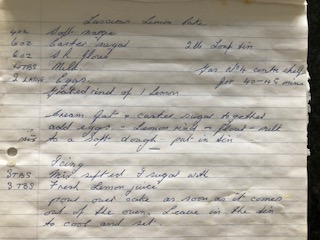 Luscious Lemon Cake
4oz Soft marge
6oz Caster sugar 2lb Loaf tin
6oz S.R. flour
4 TBS Milk Gas No 4 centre shelf
2 Large Eggs. for 40-45 mins
Grated rind of 1 Lemon
Cream fat & caster sugar together
add eggs - Lemon rind - flour - milk
to a soft dough put in tin
Icing
3 TBS Mix sifted I sugar with
3 TBS Fresh Lemon juice
pour over cake as soon as it comes
out of the oven. Leave in the tin
to cool and set.